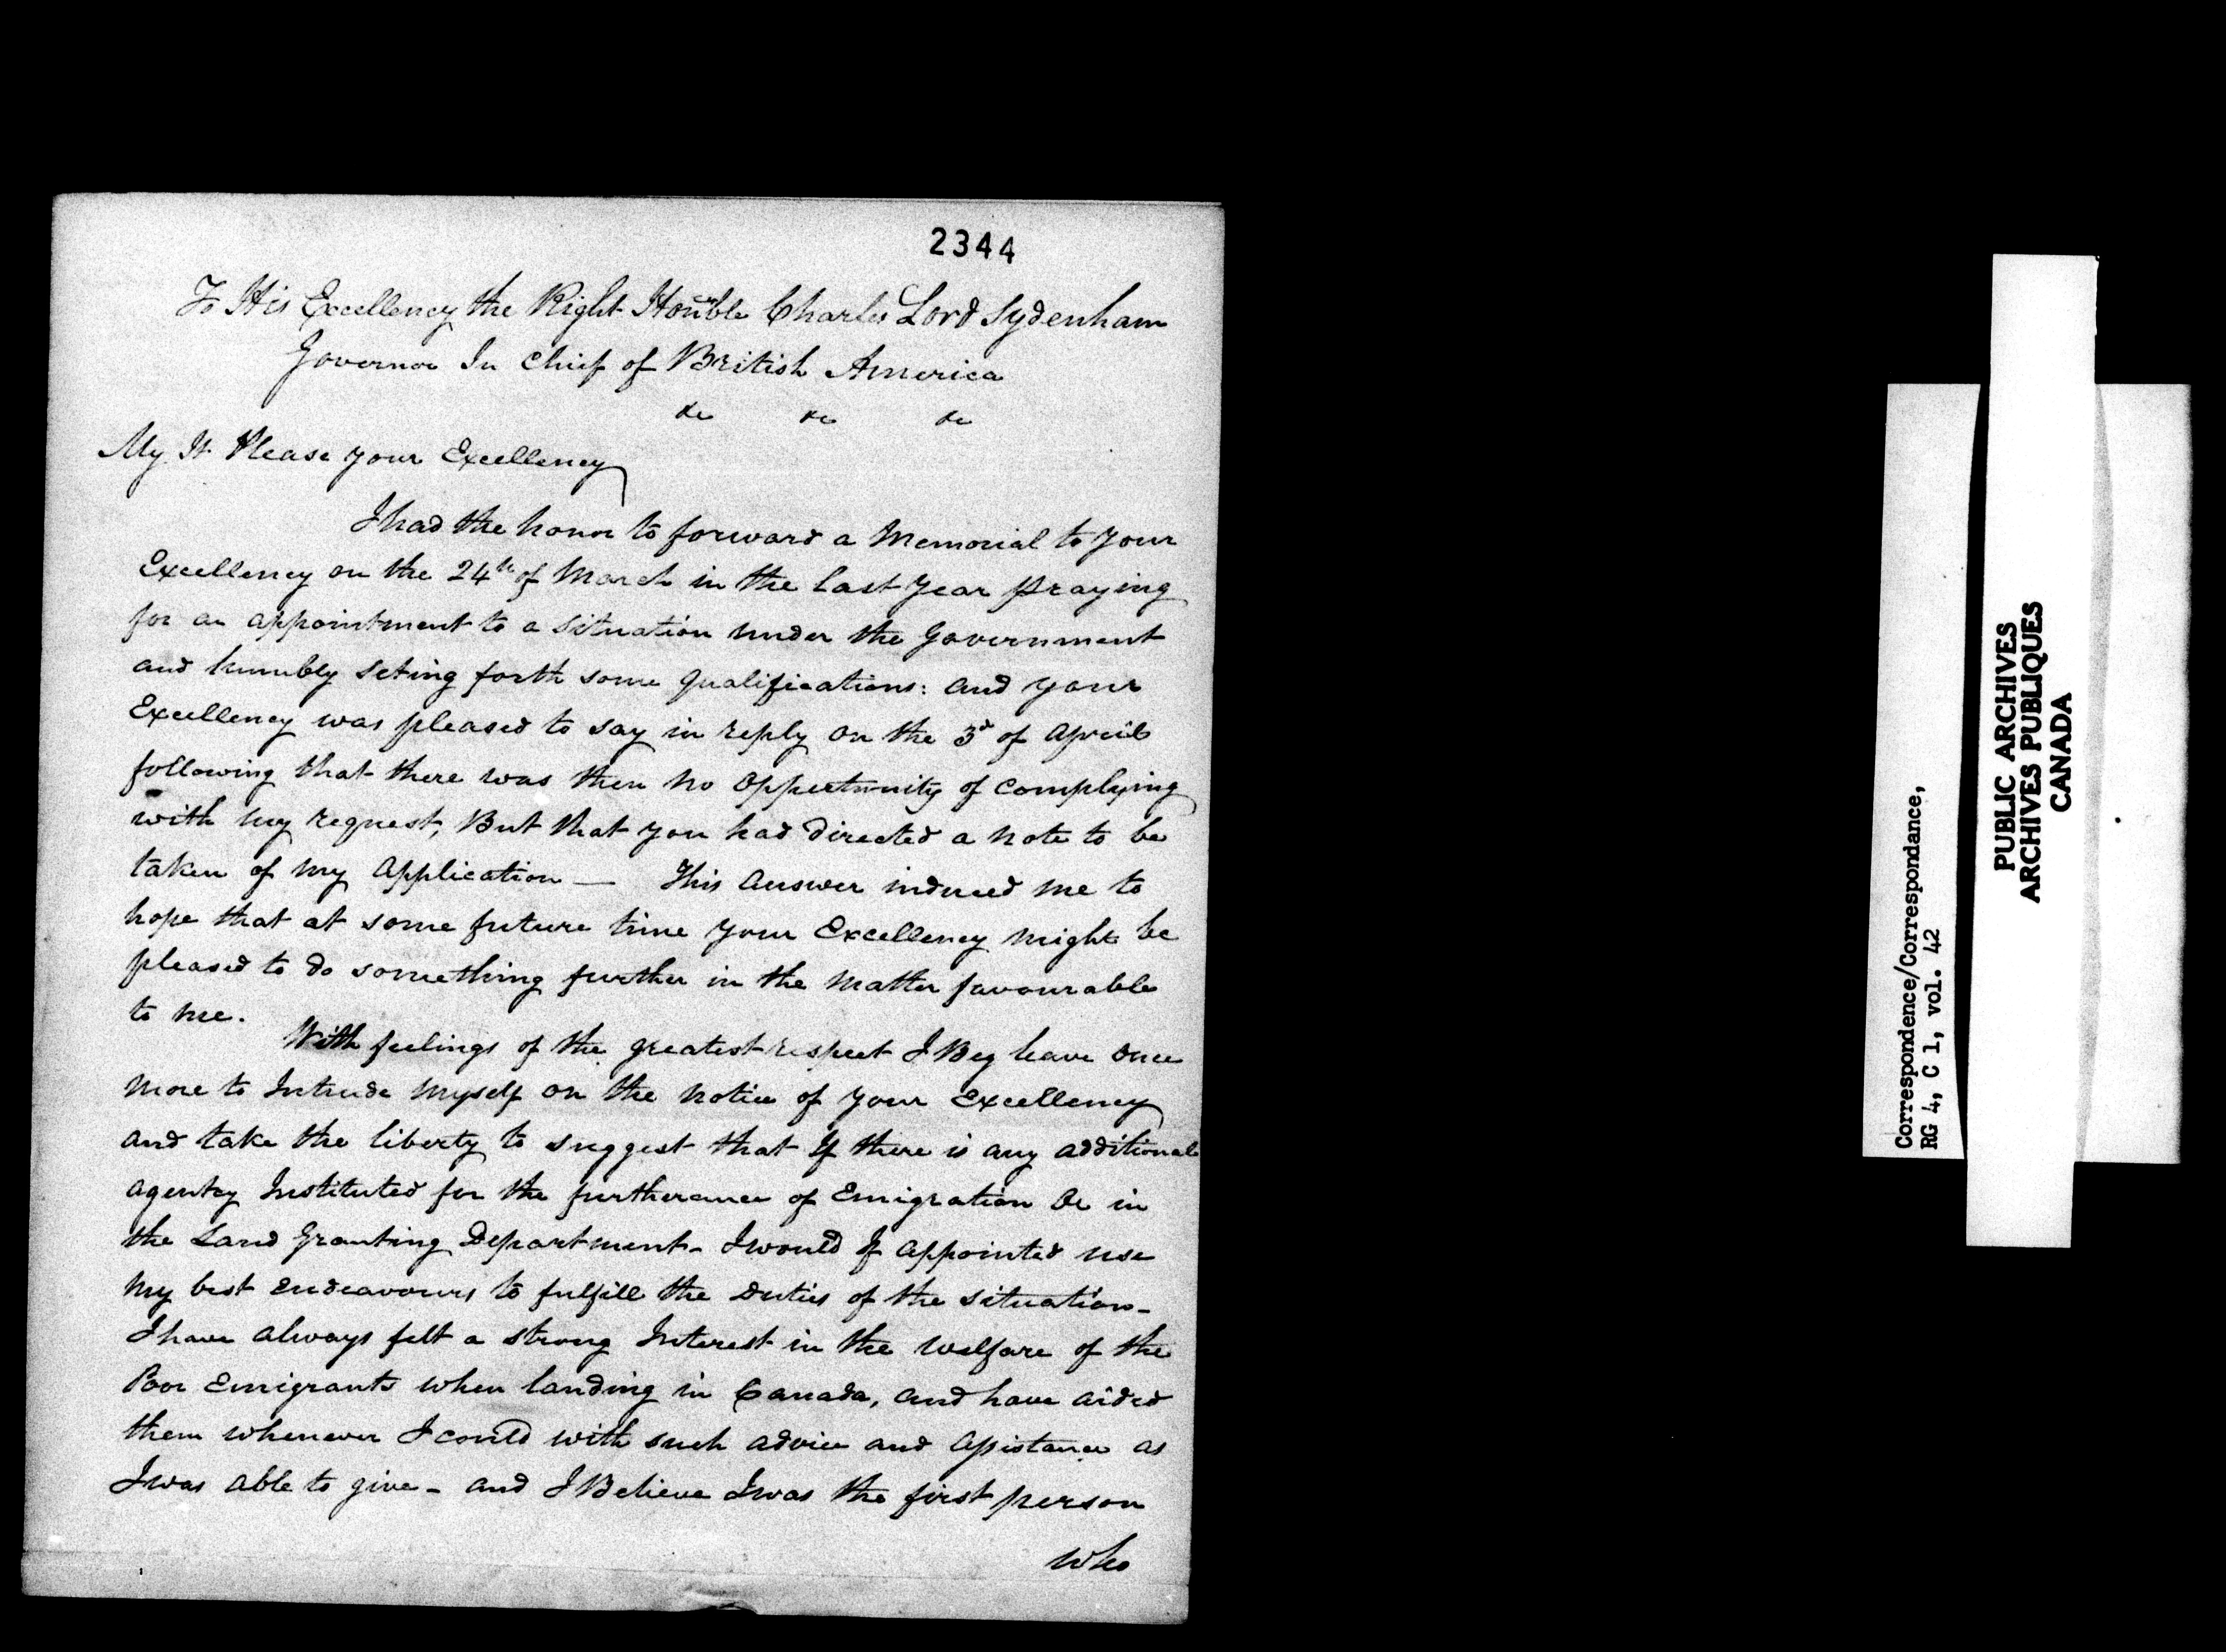 2344
To His Excellency the Right Honble Charles Lord Sydenham
Governor In Chief of British America
&c &c &c
My It Please your Excellency
I had the honor to forward a Memorial to Your
Excellency on the 24th of March in the last Year praying
for an appointment to a situation under the Government
and humbly seting forth some qualifications: and your
Excellency was pleased to say in reply on the 3d of April
following that there was then no oppertunity of complying
with my request, But that you had directed a note to be
taken of my Application — This answer induced me to
hope that at some future time your Excellency might be
pleased to do something further in the matter favourable
to me.
With feelings of the greatest respect I Beg leave once
more to Intrude myself on the notice of your Excellency
and take the liberty to suggest that If there is any additional
agentcy Instituted for the furtherance of Emigration Or in
the Land Granting Department - I would If appointed use
my best endeavours to fulfill the Duties of the situation -
I have always felt a strong Interest in the welfare of the
Poor Emigrants when landing in Canada, and have aided
them whenever I could with such advice and assistance as
I was able to give - and I Believe I was the first person
who
Correspondence/Correspondance,
RG 4, C 1, vol. 42
PUBLIC ARCHIVES
ARCHIVES PUBLIQUES
CANADA